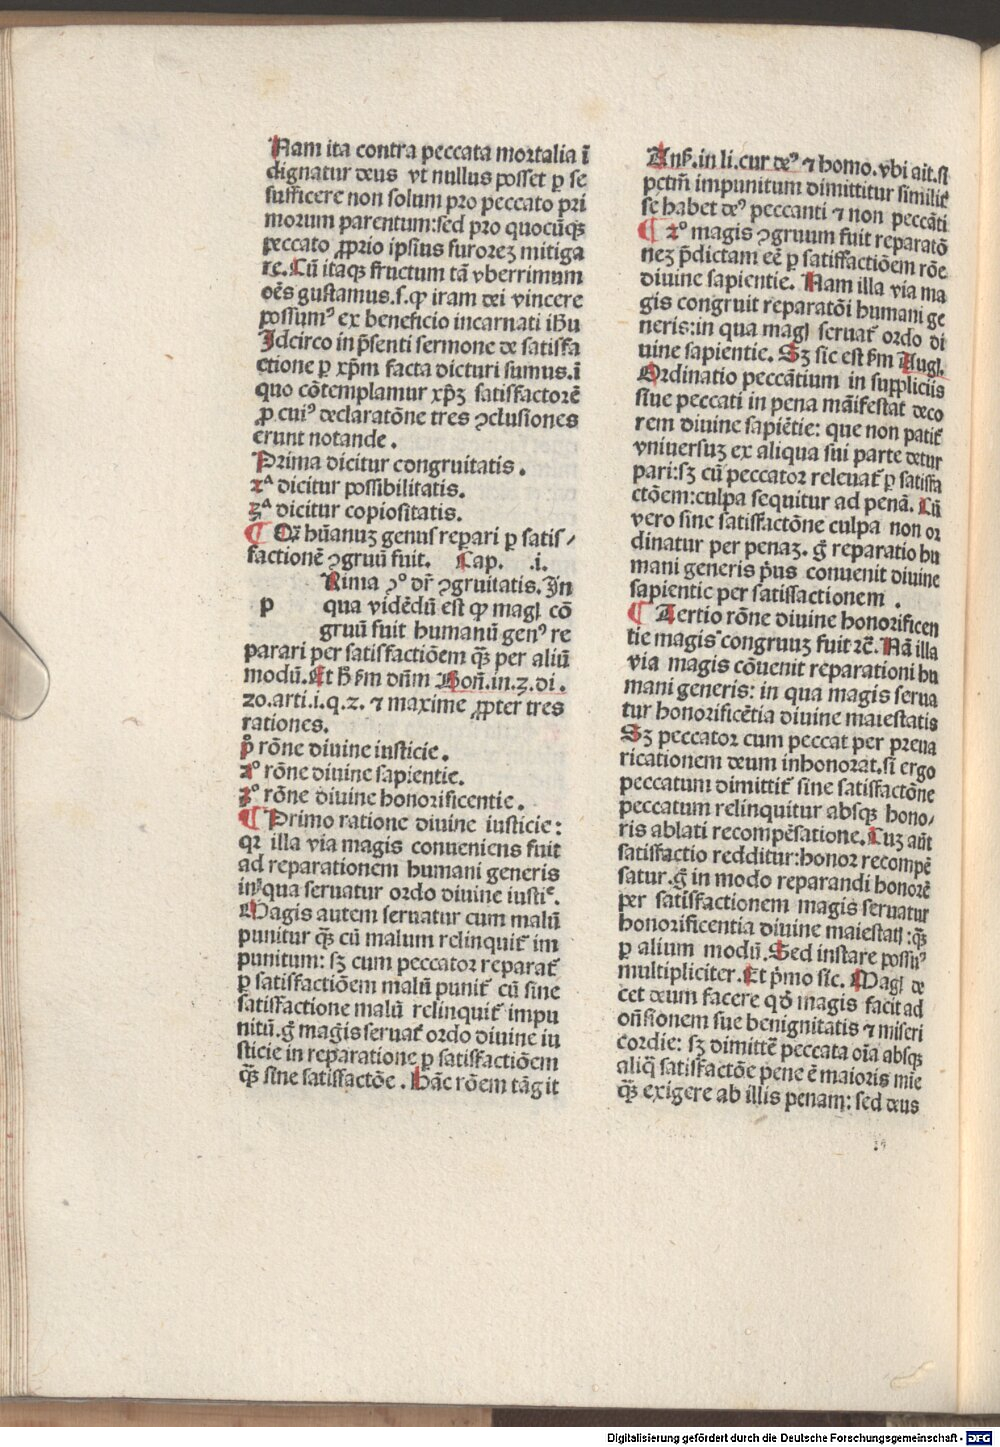 Nam ita contra peccata mortalia ī
dignatur deus vt nullus posset p se
sufficere non solum pro peccato pri
morum parentum:sed pro quocūqꝫ
peccato ꝓprio ipsius furoreꝫ mitiga
re.Cū itaqꝫ fructum tā vberrimum
oēs gustamus.s.ꝙ iram dei vincere
possumꝰ ex beneficio incarnati ihu
Idcirco in p̄senti sermone de satisfa
ctione p xp̄m facta dicturi sumus.ī
quo cōtemplamur xp̄ꝫ satisfactorē
ꝓ cuiꝰ declaratōne tres ꝯclusiones
erunt notande.
Prima dicitur congruitatis.
2ᵃ dicitur possibilitatis.
3ᵃ dicitur copiositatis.
¶ Qꝛ hūanuꝫ genus repari p satis⸗
factionē ꝯgruū fuit. Cap. .i.
Rima ꝯᵒ dr̄ ꝯgruitatis. In
p qua vidēdū est ꝙ magꝭ cō
gruū fuit humanū genꝰ re
parari per satisfactiōem qꝫ̄ per aliū
modū.Et h̄ ẜm dn̄m Bon̄.in.3.di.
20.arti.i.q.2. ⁊ maxime ꝓpter tres
rationes.
pᵒ rōne diuine iusticie.
2ᵒ rōne diuine sapientie.
3ᵒ rōne diuine honorificentie.
¶ Primo ratione diuine iusticie:
qꝛ illa via magis conueniens fuit
ad reparationem humani generis
in qua seruatur ordo diuine iustiᵉ.
Magis autem seruatur cum malū
punitur qꝫ̄ cū malum relinquit̄ im
punitum: sꝫ cum peccator reparat̄
p satisfactiōem malū punit̄ cū sine
satisfactione malū relinquit̄ impu
nitū.g̊ magis seruat̄ ordo diuine iu
sticie in reparatione p satisfactiōem
qꝫ̄ sine satisfactōe. Hāc rōem tāgit
Ans̄.in li.cur deꝰ ⁊ homo.vbi ait.si
pctm̄ impunitum dimittitur similit̄
se habet deꝰ peccanti ⁊ non peccāti
¶ 2ᵒ magis ꝯgruum fuit reparatō
neꝫ p̄dictam eē p satisfactiōem rōe
diuine sapientie. Nam illa via ma
gis congruit reparatōi humani ge
neris:in qua magꝭ seruat̄ ordo di
uine sapientie. Sꝫ sic est ẜm Augꝭ.
Ordinatio peccātium in suppliciis
siue peccati in pena māifestat deco
rem diuine sapiētie: que non patit̄
vniuersuꝫ ex aliqua sui parte detur
pari:sꝫ cū peccator releuat̄ p satisfa
ctōem:culpa sequitur ad penā. Cū
vero sine satisfactōne culpa non or
dinatur per penaꝫ. g̊ reparatio hu
mani generis p̄us conuenit diuine
sapientie per satisfactionem.
¶ Tertio rōne diuine honorificen
tie magis congruuꝫ fuit ⁊c̄.Nā illa
via magis cōuenit reparationi hu
mani generis: in qua magis serua
tur honorificētia diuine maiestatis
Sꝫ peccator cum peccat per preua
ricationem deum inhonorat.si ergo
peccatum dimittit̄ sine satisfactōne
peccatum relinquitur absqꝫ hono⸗
ris ablati recompēsatione.Cuꝫ aūt
satisfactio redditur:honor recompē
satur.g̊ in modo reparandi honorē
per satisfactionem magis seruatur
honorificentia diuine maiestatꝭ:qꝫ̄
p alium modū.Sed instare possūꝰ
multipliciter.Et p̄mo sic. Magꝭ de
cet deum facere qđ magis facit ad
on̄sionem sue benignitatis ⁊ miseri
cordie: sꝫ dimittē peccata oīa absqꝫ
aliq̄ satisfactōe pene ē maioris mīe
qꝫ̄ exigere ab illis penam: sed deus
Digitalisierung gefördert durch die Deutsche Forschungsgemeinschaft - DFG